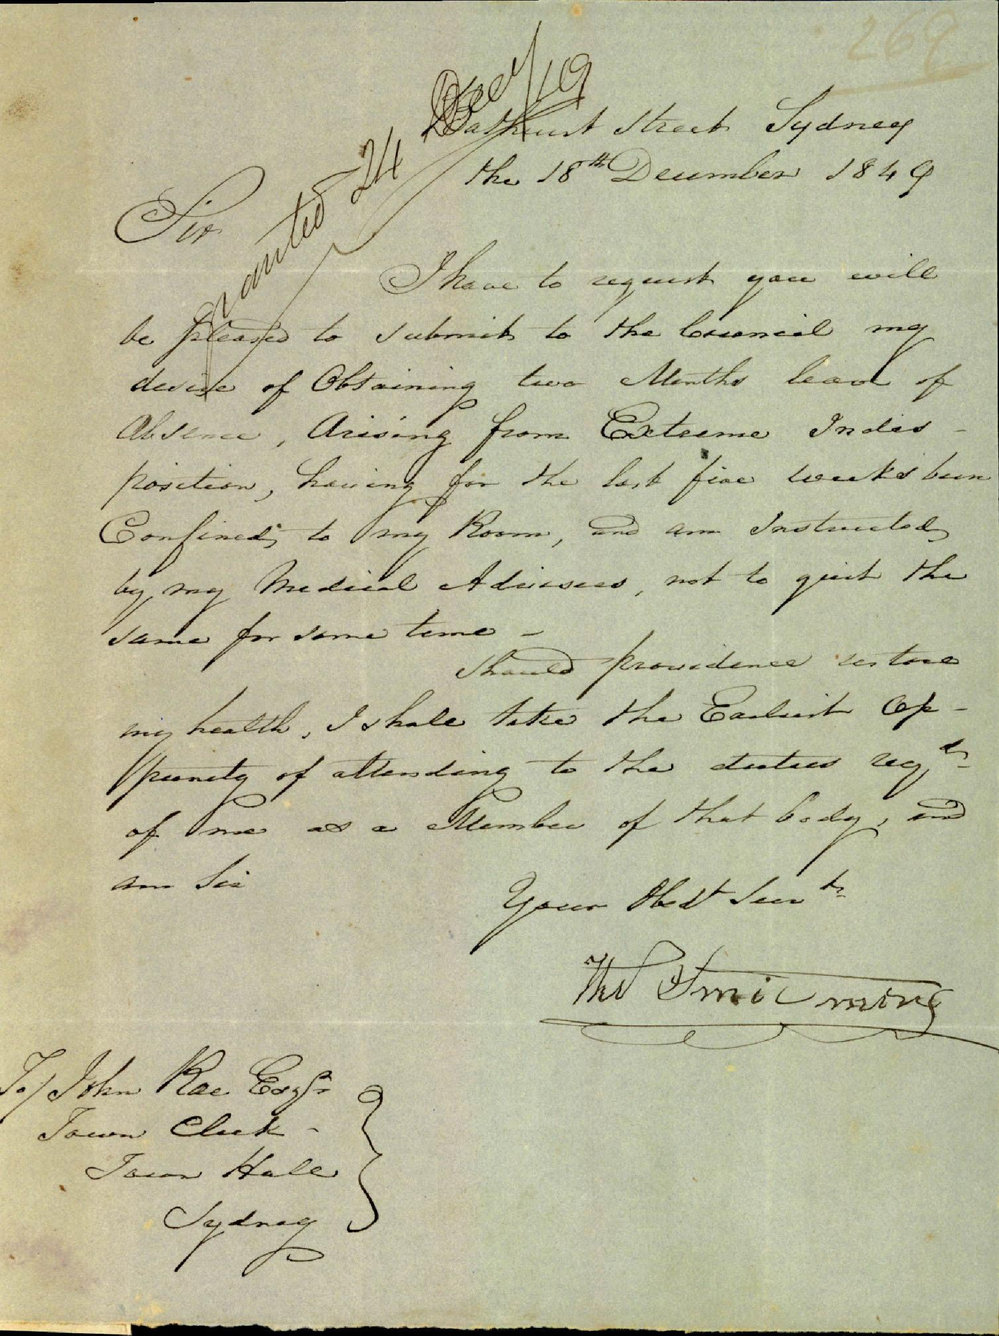 269
Granted 24 Decr/49
Bathurst Street Sydney
the 18th December 1849
Sir
I have to request you will
be pleased to submit to the Council my
desire of Obtaining two Months leave of
Absence, Arising from Extreme Indis-
position, having for the last five weeks been
Confined to my Room, and am Instructed,
by my Medical Advisers, not to quit the
same for some time -
Should providence restore
my health, I shall take the Earliest Op-
punity of attending to the duties reqd
of me as a Member of that body, and
am Sir
Your Obedt Servt
Thos Smidmore
To/ John Rae Esqr
Town Clerk -
Town Hall
Sydney